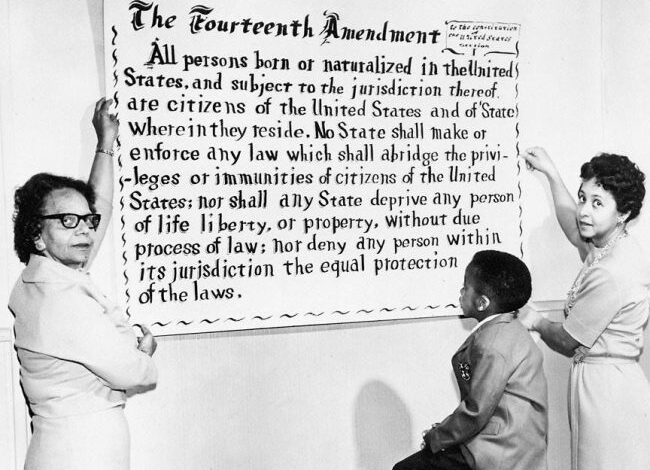 The Fourteenth Amendment
to the constitution
of the United States
section 1
All persons born or naturalized in the United
States, and subject to the jurisdiction thereof.
are citizens of the United States and of State
wherein they reside. No State shall make or
enforce any law which shall abridge the privi-
-leges or immunities of citizens of the United
States; nor shall any State deprive any person
of life liberty, or property, without due
process of law; nor deny any person within
its jurisdiction the equal protection
of the laws.